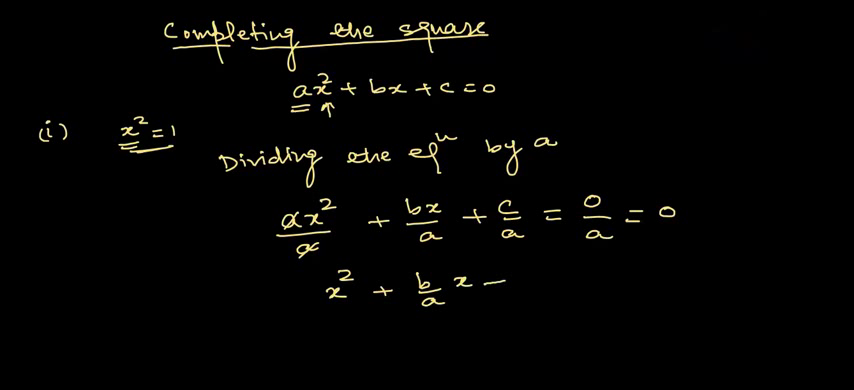 Completing the square
ax² + bx + c = 0
(i) x² = 1
Dividing the eqⁿ by a
ax²/a + bx/a + c/a = 0/a = 0
x² + b/a x −